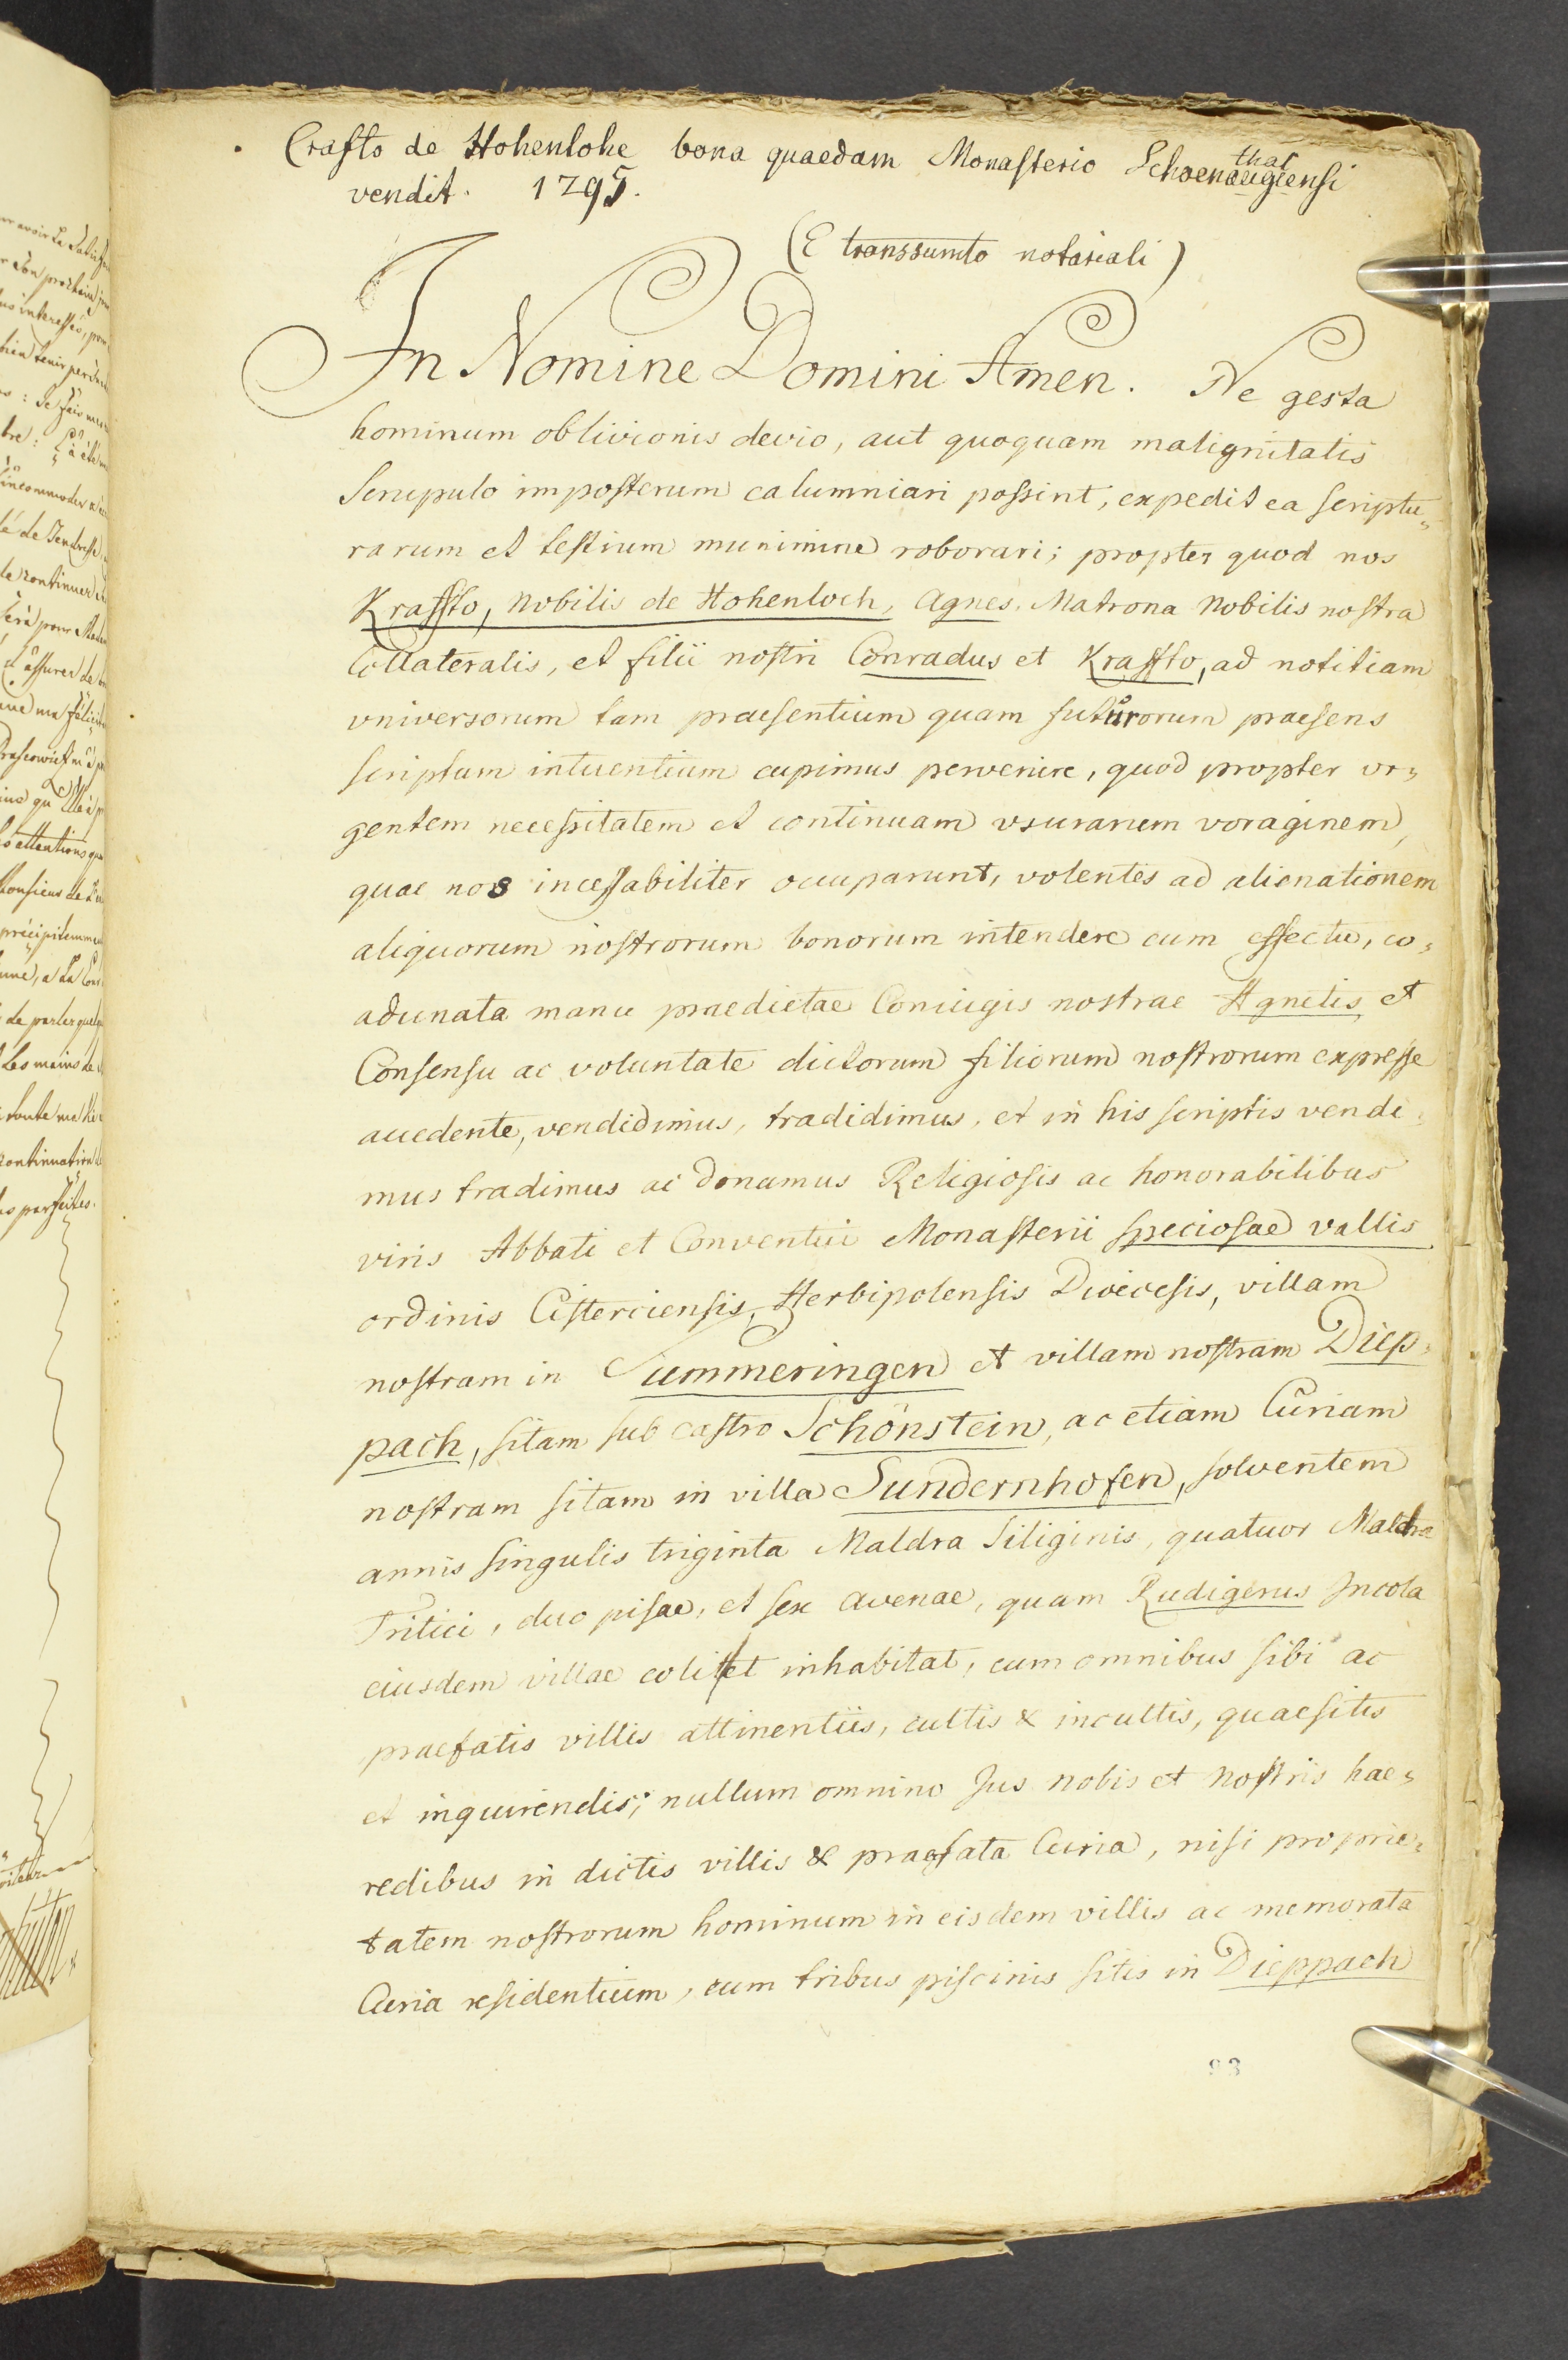 Crafto de Hohenlohe bona quaedam Monasterio Schoenthalensi
vendit. 1295.
(E transsumto notariali)
In Nomine Domini Amen. Ne gesta
hominum oblivionis devio, aut quoquam malignitatis
Scrupulo imposterum calumniari possint, expedit ea scriptu=
rarum et testium munimine roborari; propter quod nos
Kraffto, nobilis de Hohenloch, Agnes, Matrona nobilis nostra
Collateralis, et filii nostri Conradus et Kraffto, ad notitiam
vniversorum tam praesentium quam futurorum praesens
scriptum intuentium cupimus pervenire, quod propter vr=
gentem necessitatem et continuam vsurarum voraginem,
quae nos incessabiliter occuparunt, volentes ad alienationem
aliquorum nostrorum bonorum intendere cum effectu, co=
adunata manu praedictae Coniugis nostrae Agnetis, et
Consensu ac voluntate dictorum filiorum nostrorum expresse
accedente, vendidimus, tradidimus, et in his scriptis vendi=
mus tradimus ac donamus Religiosis ac honorabilibus
viris Abbati et Conventui Monasterii speciosae vallis
ordinis Cisterciensis, Herbipolensis Dioecesis, villam
nostram in Summeringen et villam nostram Diep=
pach, sitam sub castro Schönstein, ac etiam Curiam
nostram sitam in villa Sundernhofen, solventem
annis singulis triginta Maldra Siliginis, quatuor Maldra
Tritici, duo pisae, et sex avenae, quam Rudigerus Incola
eiusdem villae colit et inhabitat, cum omnibus sibi ac
praefatis villis attinentiis, cultis & incultis, quaesitis
et inquirendis; nullum omnino Jus nobis et nostris hae=
redibus in dictis villis & praefata Curia, nisi proprie=
tatem nostrorum hominum in eisdem villis ac memorata
Curia residentium, cum tribus piscinis sitis in Dieppach
93